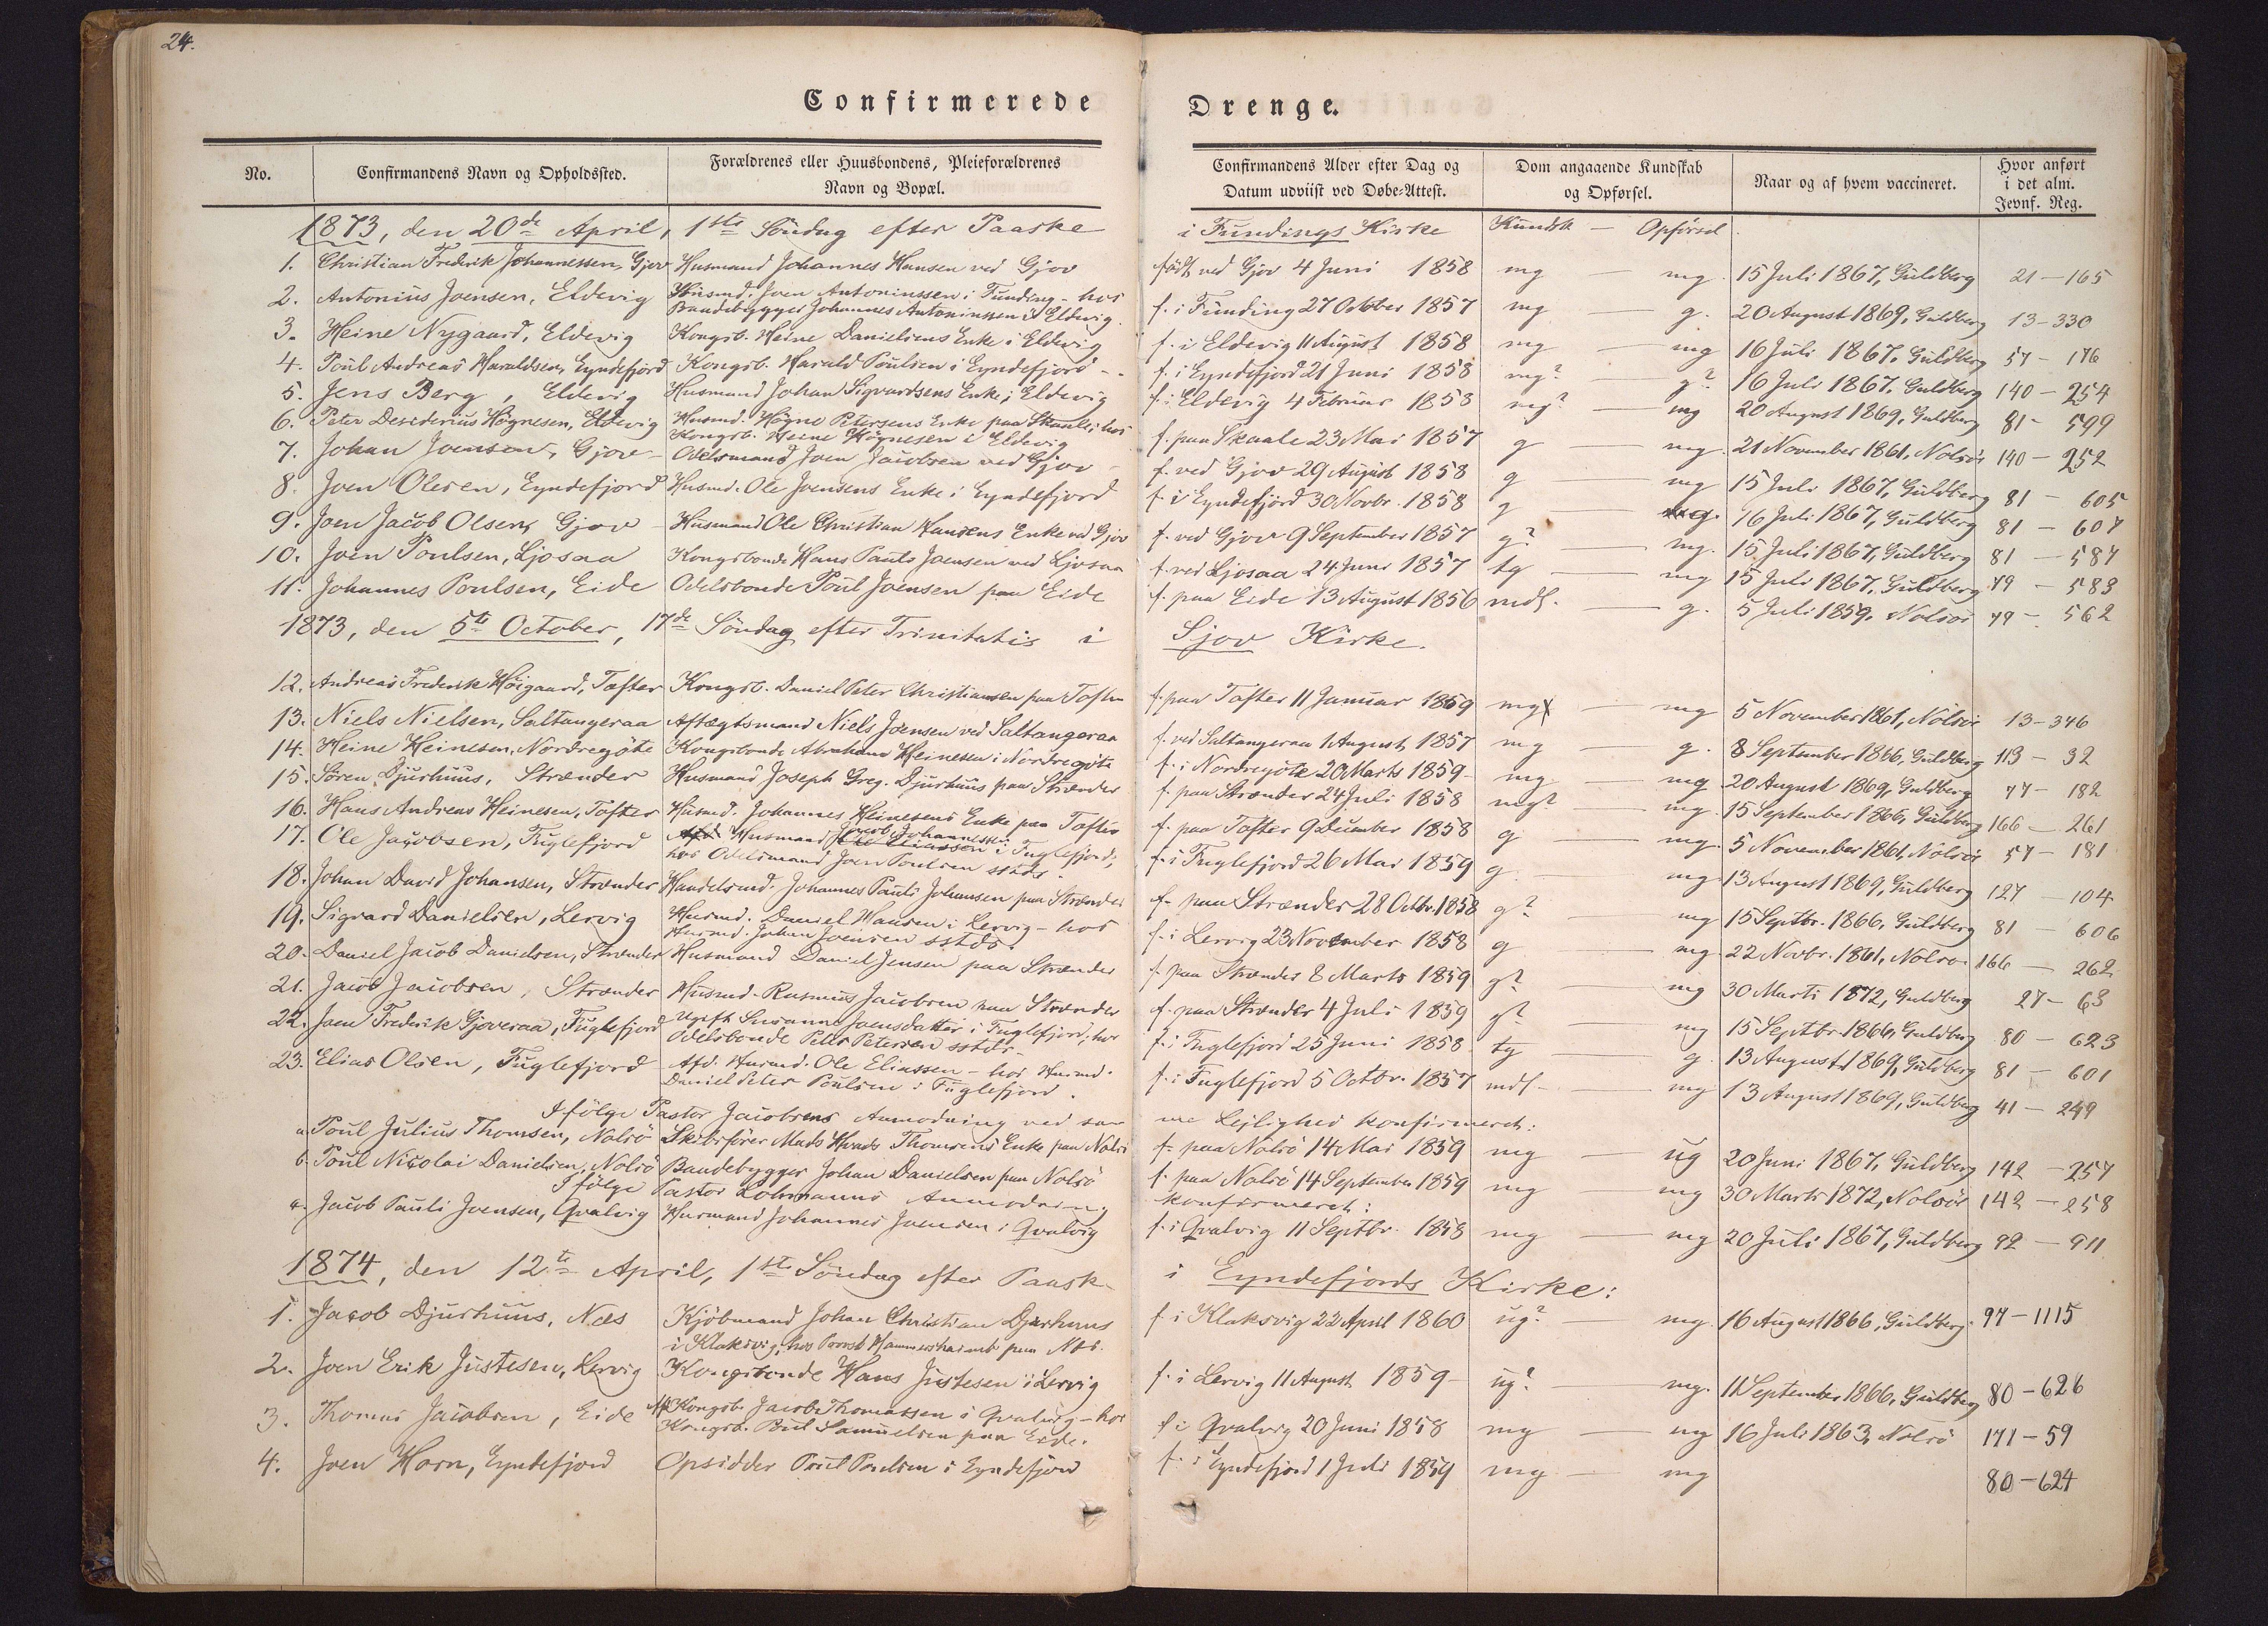 24.
Confirmerede Drenge.
No. Confirmandens Navn og Opholdssted. Forældrenes eller Huusbondens, Pleieforældrenes Navn og Bopæl. Confirmandens Alder efter Dag og Datum udviist ved Døbe-Attest. Dom angaaende Kundskab og Opførsel. Naar og af hvem vaccineret. Hvor anført i det alm. Jevnf. Reg.
1873, den 20de April, 1ste Söndag efter Paaske i Fundings Kirke Kundsk — Opförsel.
1. Christian Frederik Johannessen, Gjov Husmand Johannes Hansen ved Gjov födt ved Gjov 4 Juni 1858 mg — mg. 15 Juli 1867, Guldberg 21 — 165
2. Antonius Joensen, Eldevig Husmd. Joen Antoniussen i Funding - hos
Baadebygger Johannes Antoniussen i Eldevig. f. i Funding 27 October 1857 mg — g. 20 August 1869, Guldberg 13 - 330
3. Heine Nygaard, Eldevig Kongsb. Heine Danielsens Enke i Eldevig f. i Eldevig 11 August 1858 mg — mg 16 Juli 1867, Guldberg 57 - 176
4. Poul Andreas Haraldsen, Eyndefjord Kongsb. Harald Poulsen i Eyndefjord - f. i Eyndefjord 21 Juni 1858 mg? — g? 16 Juli 1867. Guldberg 140 - 254
5. Jens Berg, Eldevig Husmand Johan Sigvardsens Enke i Eldevig f. i Eldevig 4 Februar 1858 mg? — mg 20 August 1869, Guldberg 81 - 599
6. Peter Desiderius Högnesen, Eldevig Husmd. Högne Petersens Enke paa Skaale; hos
Kongsb. Heine Högnesen i Eldevig f. paa Skaale 23 Mai 1857 g — mg. 21 November 1861, Nolsöe 140 - 252
7. Johan Joensen, Gjov - Odelsmand Joen Jacobsen ved Gjov - f. ved Gjov 29 August 1858 g — mg 15 Juli 1867, Guldberg 81 - 605
8. Joen Olesen, Eyndefjord Husmd. Ole Joensens Enke i Eyndefjord f. i Eyndefjord 30 Novbr. 1858 g — mg. 16 Juli 1867, Guldberg 81 - 607
9. Joen Jacob Olsen, Gjov - Husmand Ole Christian Hansens Enke ved Gjov f. ved Gjov 9 September 1857 g? — mg. 15 Juli 1867, Guldberg 81 - 587
10. Joen Poulsen, Ljosaa Kongsbonde Hans Pauli Joensen ved Ljosaa f. ved Ljosaa 24 Juni 1857 tg — mg 15 Juli 1867, Guldberg 79 - 583
11. Johannes Poulsen, Eide Odelsbonde Poul Joensen paa Eide f. paa Eide 13 August 1856 mdl. — g. 5 Juli 1859. Nolsöe 79 - 562
1873, den 5te October, 17de Söndag efter Trinitatis i Gjov Kirke.
12. Andreas Frederik Höigaard, Tofter Kongsb. Daniel Peter Christiansen paa Tofter f. paa Tofter 11 Januar 1859 mg — mg 5 November 1861, Nolsöe 13 - 346
13. Niels Nielsen, Saltangeraa Aftægtsmand Niels Joensen ved Saltangeraa f. ved Saltangeraa 1 August 1857 mg — g. 8 September 1866, Guldberg 113 - 32
14. Heine Heinesen, Nordregöte Kongsbonde Abraham Heinesen i Nordregöte f. i Nordregöte 20 Marts 1859 - mg — mg 20 August 1869, Guldberg 77 - 182
15. Sören Djurhuus, Strænder Husmand Joseph Greg. Djurhuus paa Strænder f. paa Strænder 24 Juli 1858 mg? — mg. 15 September 1866, Guldberg 166 - 261
16. Hans Andreas Heinesen, Tofter Husmd. Johannes Heinesens Enke paa Tofter f. paa Tofter 9 December 1858 g — mg. 5 November 1861, Nolsöe 57 - 181
17. Ole Jacobsen, Fuglefjord Afd. Husmand Jacob Johannessen Ole Eliassen i Fuglefjord;
hos Odelsmand Joen Poulsen sstds. f. i Fuglefjord 26 Mai 1859 g. — mg. 13 August 1869, Guldberg 127 - 104
18. Johan David Johansen, Strænder Handelsmd. Johannes Pauli Johansen paa Strænder f. paa Strænder 28 Octbr. 1858 g? — mg 15 Septbr. 1866, Guldberg 81 - 606
19. Sigvard Danielsen, Lervig Husmd. Daniel Hansen i Lervig - hos
Husmd. Johan Joensen sstds. f. i Lervig 23 November 1858 g — mg. 22 Novbr. 1861, Nolsöe 166 - 262
20. Daniel Jacob Danielsen, Strænder Husmand Daniel Jensen paa Strænder f. paa Strænder 8 Marts 1859 g? — mg 30 Marts 1872, Guldberg 27 - 63
21. Jacob Jacobsen, Strænder Husmd. Rasmus Jacobsen paa Strænder f. paa Strænder 4 Juli 1859 g? — mg 15 Septbr. 1866, Guldberg 80 - 623
22. Joen Frederik Gjoveraa, Fuglefjord Ugift Susanne Joensdatter i Fuglefjord; hos
Odelsbonde Peter Petersen sstds. - f. i Fuglefjord 25 Juni 1858 - tg — g. 13 August 1869, Guldberg 81 - 601
23. Elias Olsen, Fuglefjord Afd. Husmd. Ole Eliassen - hos Husmd.
Daniel Peter Poulsen i Fuglefjord. f. i Fuglefjord 5 Octbr. 1857 mdl - — mg 13 August 1869, Guldberg 41 - 249
Ifölge Pastor Jacobsens Anmodning ved samme Lejlighed konfirmeret:
a. Poul Julius Thomsen, Nolsö Skibsförer Mads Thomsens Enke paa Nolsö f. paa Nolsö 14 Mai 1859 mg — ug 20 Juni 1867, Guldberg 142 - 257
b. Poul Nicolai Danielsen, Nolsö Baadebygger Johan Danielsen paa Nolsö f. paa Nolsö 14 September 1859 mg — mg 30 Marts 1872, Nolsöe 142 - 258
Ifölge Pastor Lohmanns Anmodning konfirmeret:
a. Jacob Pauli Joensen, Qvalvig Husmand Johannes Joensen i Qvalvig f. i Qvalvig 11 Septbr. 1858 mg — mg 20 Juli 1867, Guldberg 92 - 911
1874, den 12te April, 1ste Söndag efter Paaske i Eyndefjords Kirke:
1. Jacob Djurhuus, Næs Kjöbmand Johan Christian Djurhuus
i Klaksvig, hos Provst Hammershaimb paa Næs. f. i Klaksvig 22 April 1860 ug? — mg. 16 August 1866, Guldberg. 97 - 1115
2. Joen Erik Justesen, Lervig Kongsbonde Hans Justesen i Lervig f. i Lervig 11 August 1859 - ug? — mg. 11 September 1866, Guldberg 80 - 626
3. Thomas Jacobsen, Eide Afd. Kongsb. Jacob Thomassen i Qvalvig - hos
Kongsb. Poul Samuelsen paa Eide. f. i Qvalvig 20 Juni 1858 mg — mg 16 Juli 1863, Nolsö 171 - 59
4. Joen Horn, Eyndefjord Opsidder Poul Poulsen i Eyndefjord f. i Eyndefjord 1 Juli 1859 mg — mg 80 - 624